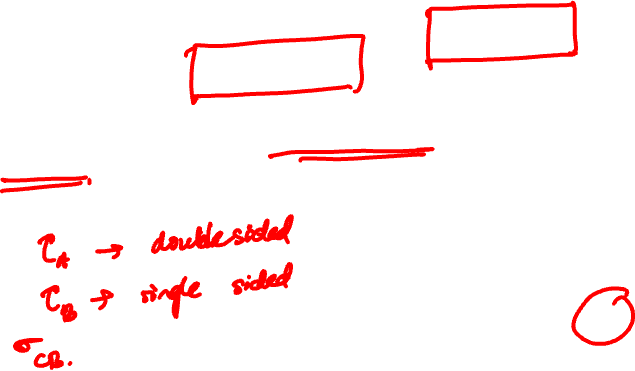 τ_A → double sided
τ_B → single sided
σ_CB.